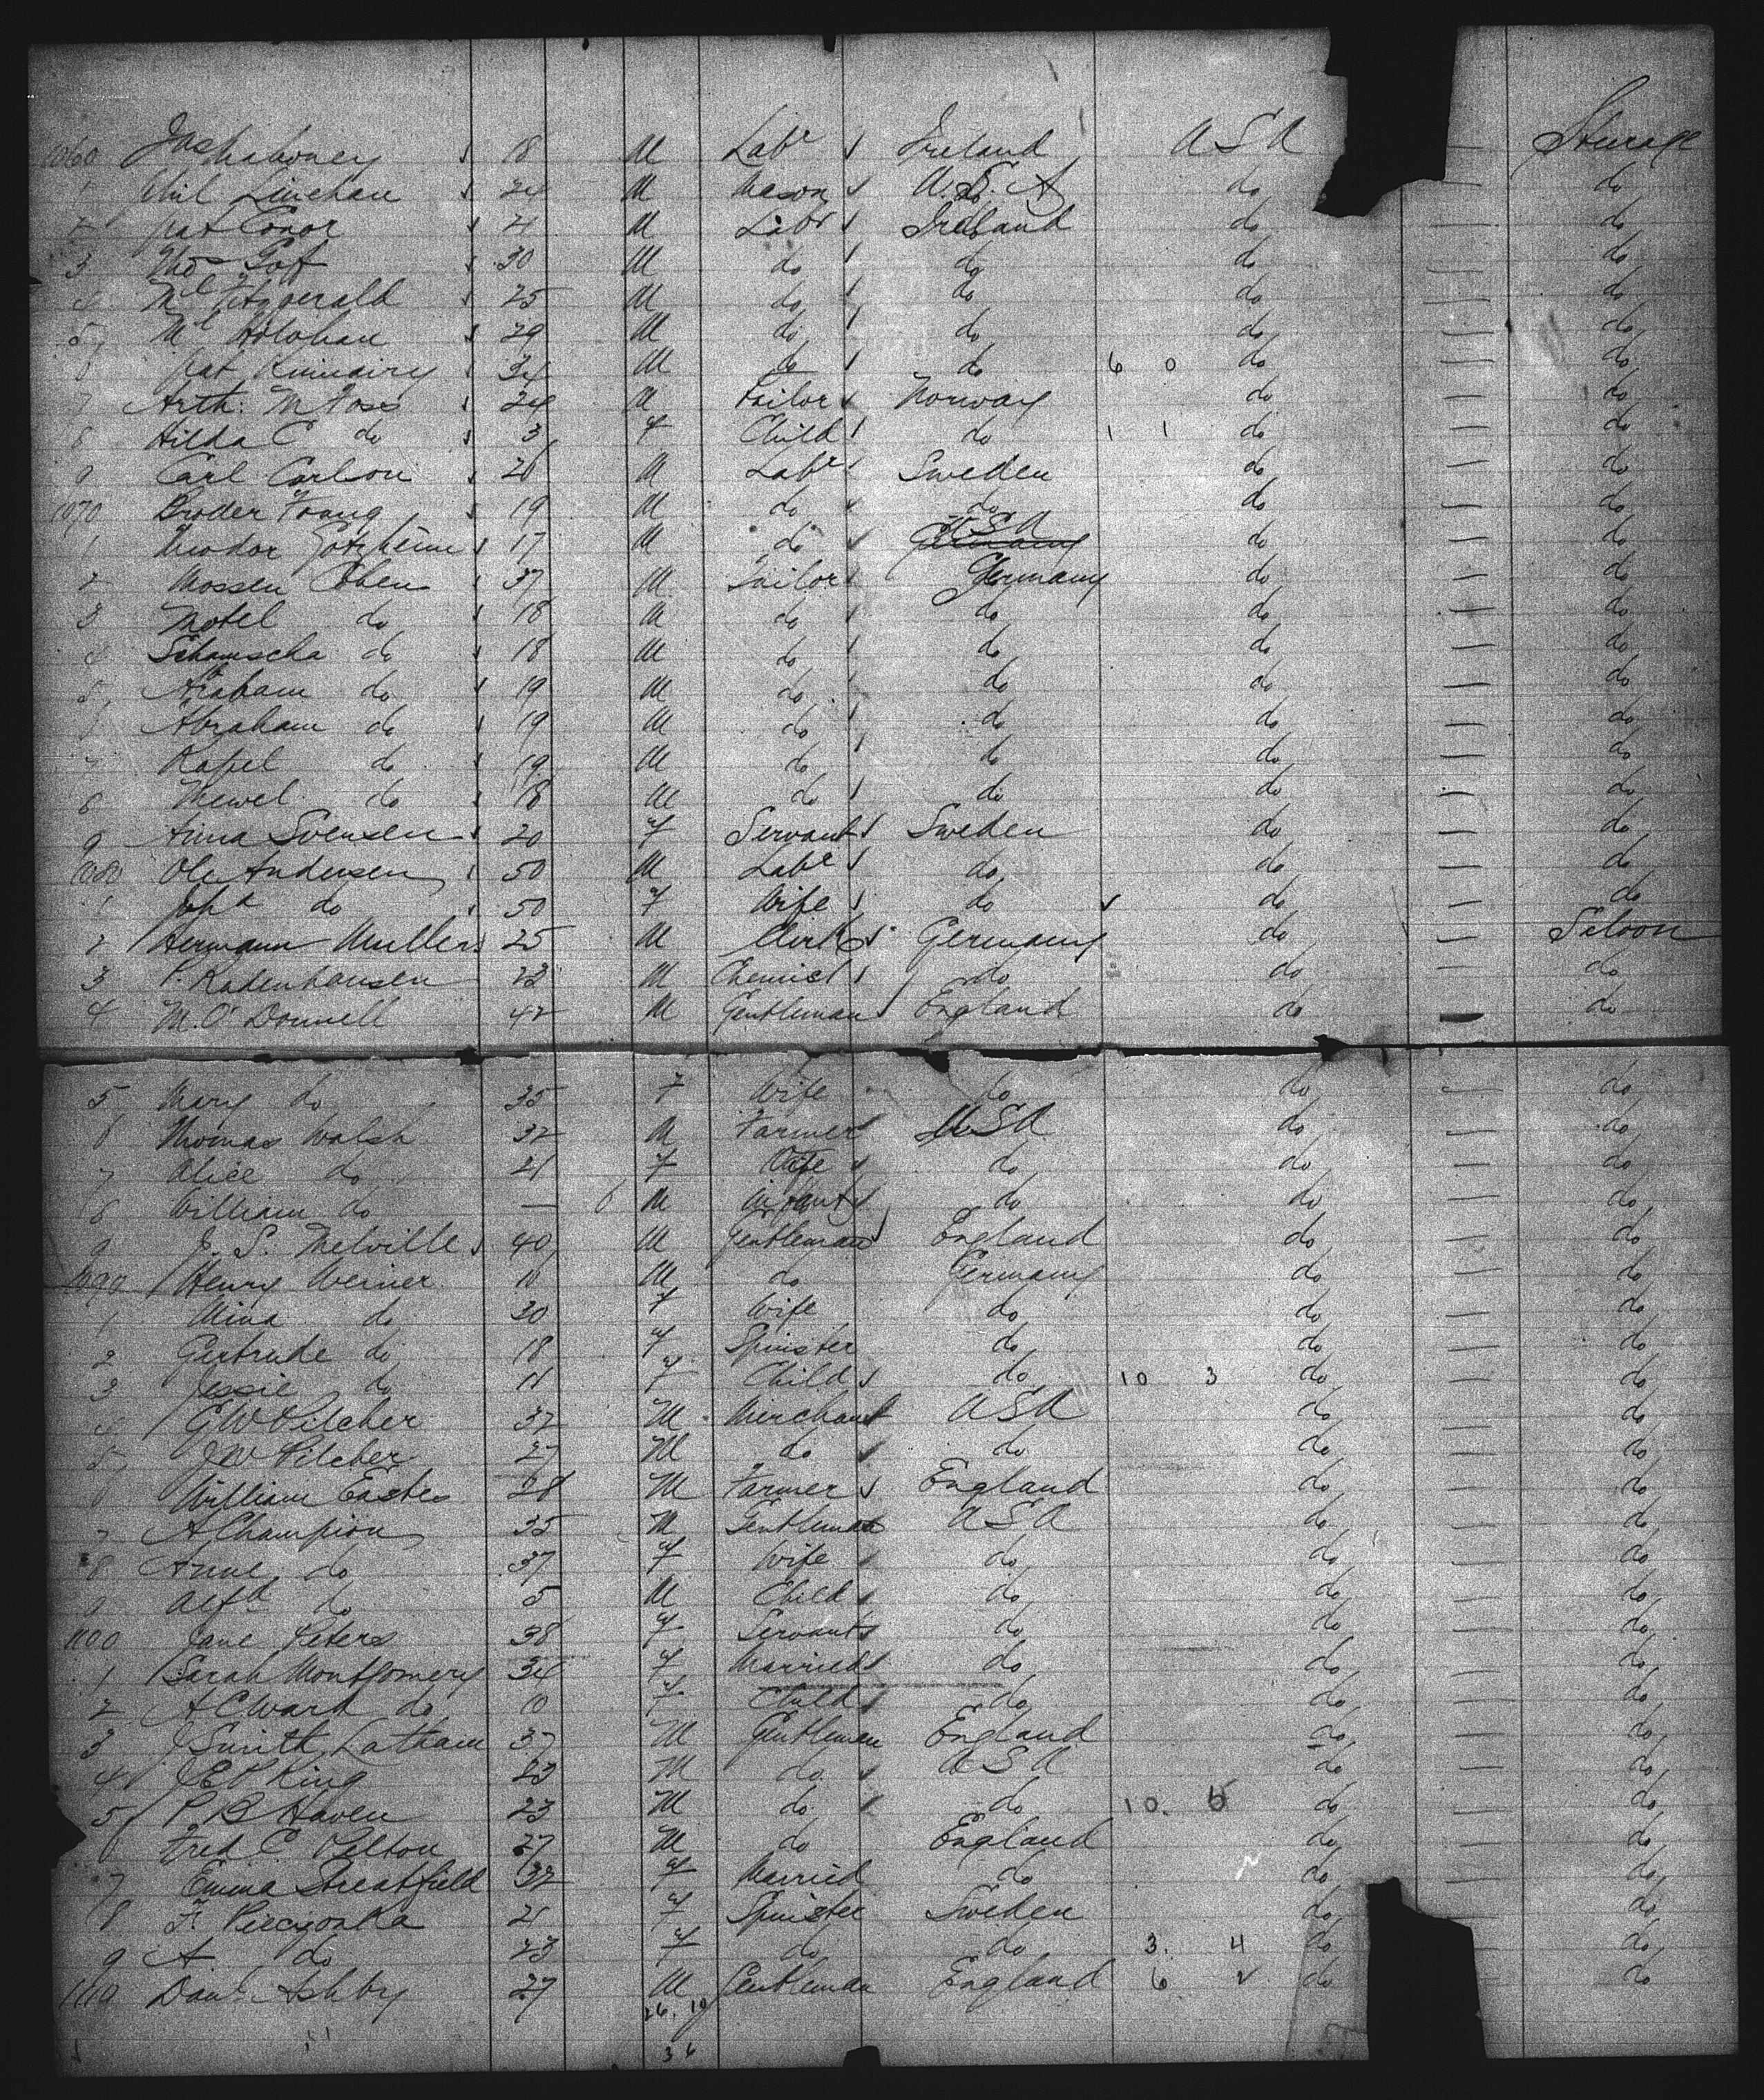 1060 Jas Mahoney 18 M Labr Ireland USA — Steerage
1 Phil Linehan 24 M Mason U.S.A do — do
2 Pat Conor 21 M Labr Ireland do — do
3 Thos Goff 30 M do do do — do
4 Ml Fitzgerald 25 M do do do — do
5 Ml Holohan 29 M do do do — do
6 Pat Kinnairy 34 M do do 6 0 do — do
7 Arth. M Voss 24 M Sailor Norway do — do
8 Hilda C do 3 F Child do 1 1 do — do
9 Carl Carlson 21 M Labr Sweden do — do
1070 Broder 19 M do do do — do
1 Theodor 17 M do USA Germany do — do
2 Mossen Cohen 37 M Tailor Germany do — do
3 Motel do 18 M do do do — do
4 Schamscha do 18 M do do do — do
5 Abraham do 19 M do do do — do
6 Abraham do 19 M do do do — do
7 Kapel do 19 M do do do — do
8 Mewel do 18 M do do do — do
9 Anna Svensen 20 F Servant Sweden do — do
1080 Ole Andersen 50 M Labr do do — do
1 Joha do 50 F Wife do do — do
2 Hermann Muller 25 M Clerk Germany do — Saloon
3 P. Radenhausen 23 M Chemist do do — do
4 M. O'Donnell 42 M Gentleman England do — do
5 Mary do 35 F Wife do do — do
6 Thomas Walsh 32 M Farmer USA do — do
7 Alice do 21 F Wife do do — do
8 William do — 6 M Infant do do — do
9 J. S. Melville 40 M Gentleman England do — do
1090 Henry Werner M do Germany do — do
1 Mina do 30 F Wife do do — do
2 Gertrude do 18 F Spinster do do — do
3 Jessie do 11 F Child do 10 3 do — do
4 G W Pilcher 32 M Merchant USA do — do
5 J W Pilcher 27 M do do do — do
6 William Eastes 28 M Farmer England do — do
7 A Champion 35 M Gentleman USA do — do
8 Anne do 37 F Wife do do — do
9 Alfd do 5 M Child do do — do
1100 Jane Peters 38 F Servant do do — do
1 Sarah Montgomery 34 F Married do do — do
2 A C Ward do 10 F Child do do — do
3 J Smith Latham 37 M Gentleman England do — do
4 J E P King 23 M do USA do do
5 P B Haven 23 M do do 10. 6 do do
6 Fred C. Pelton 27 M do England do do
7 Emma Streatfield 32 F Married do do do
8 F. 21 F Spinster Sweden do do
9 A do 23 F do do 3. 4 do do
1110 Danl Ashby 27 M Gentleman England 6 2 do do
26. 19
36